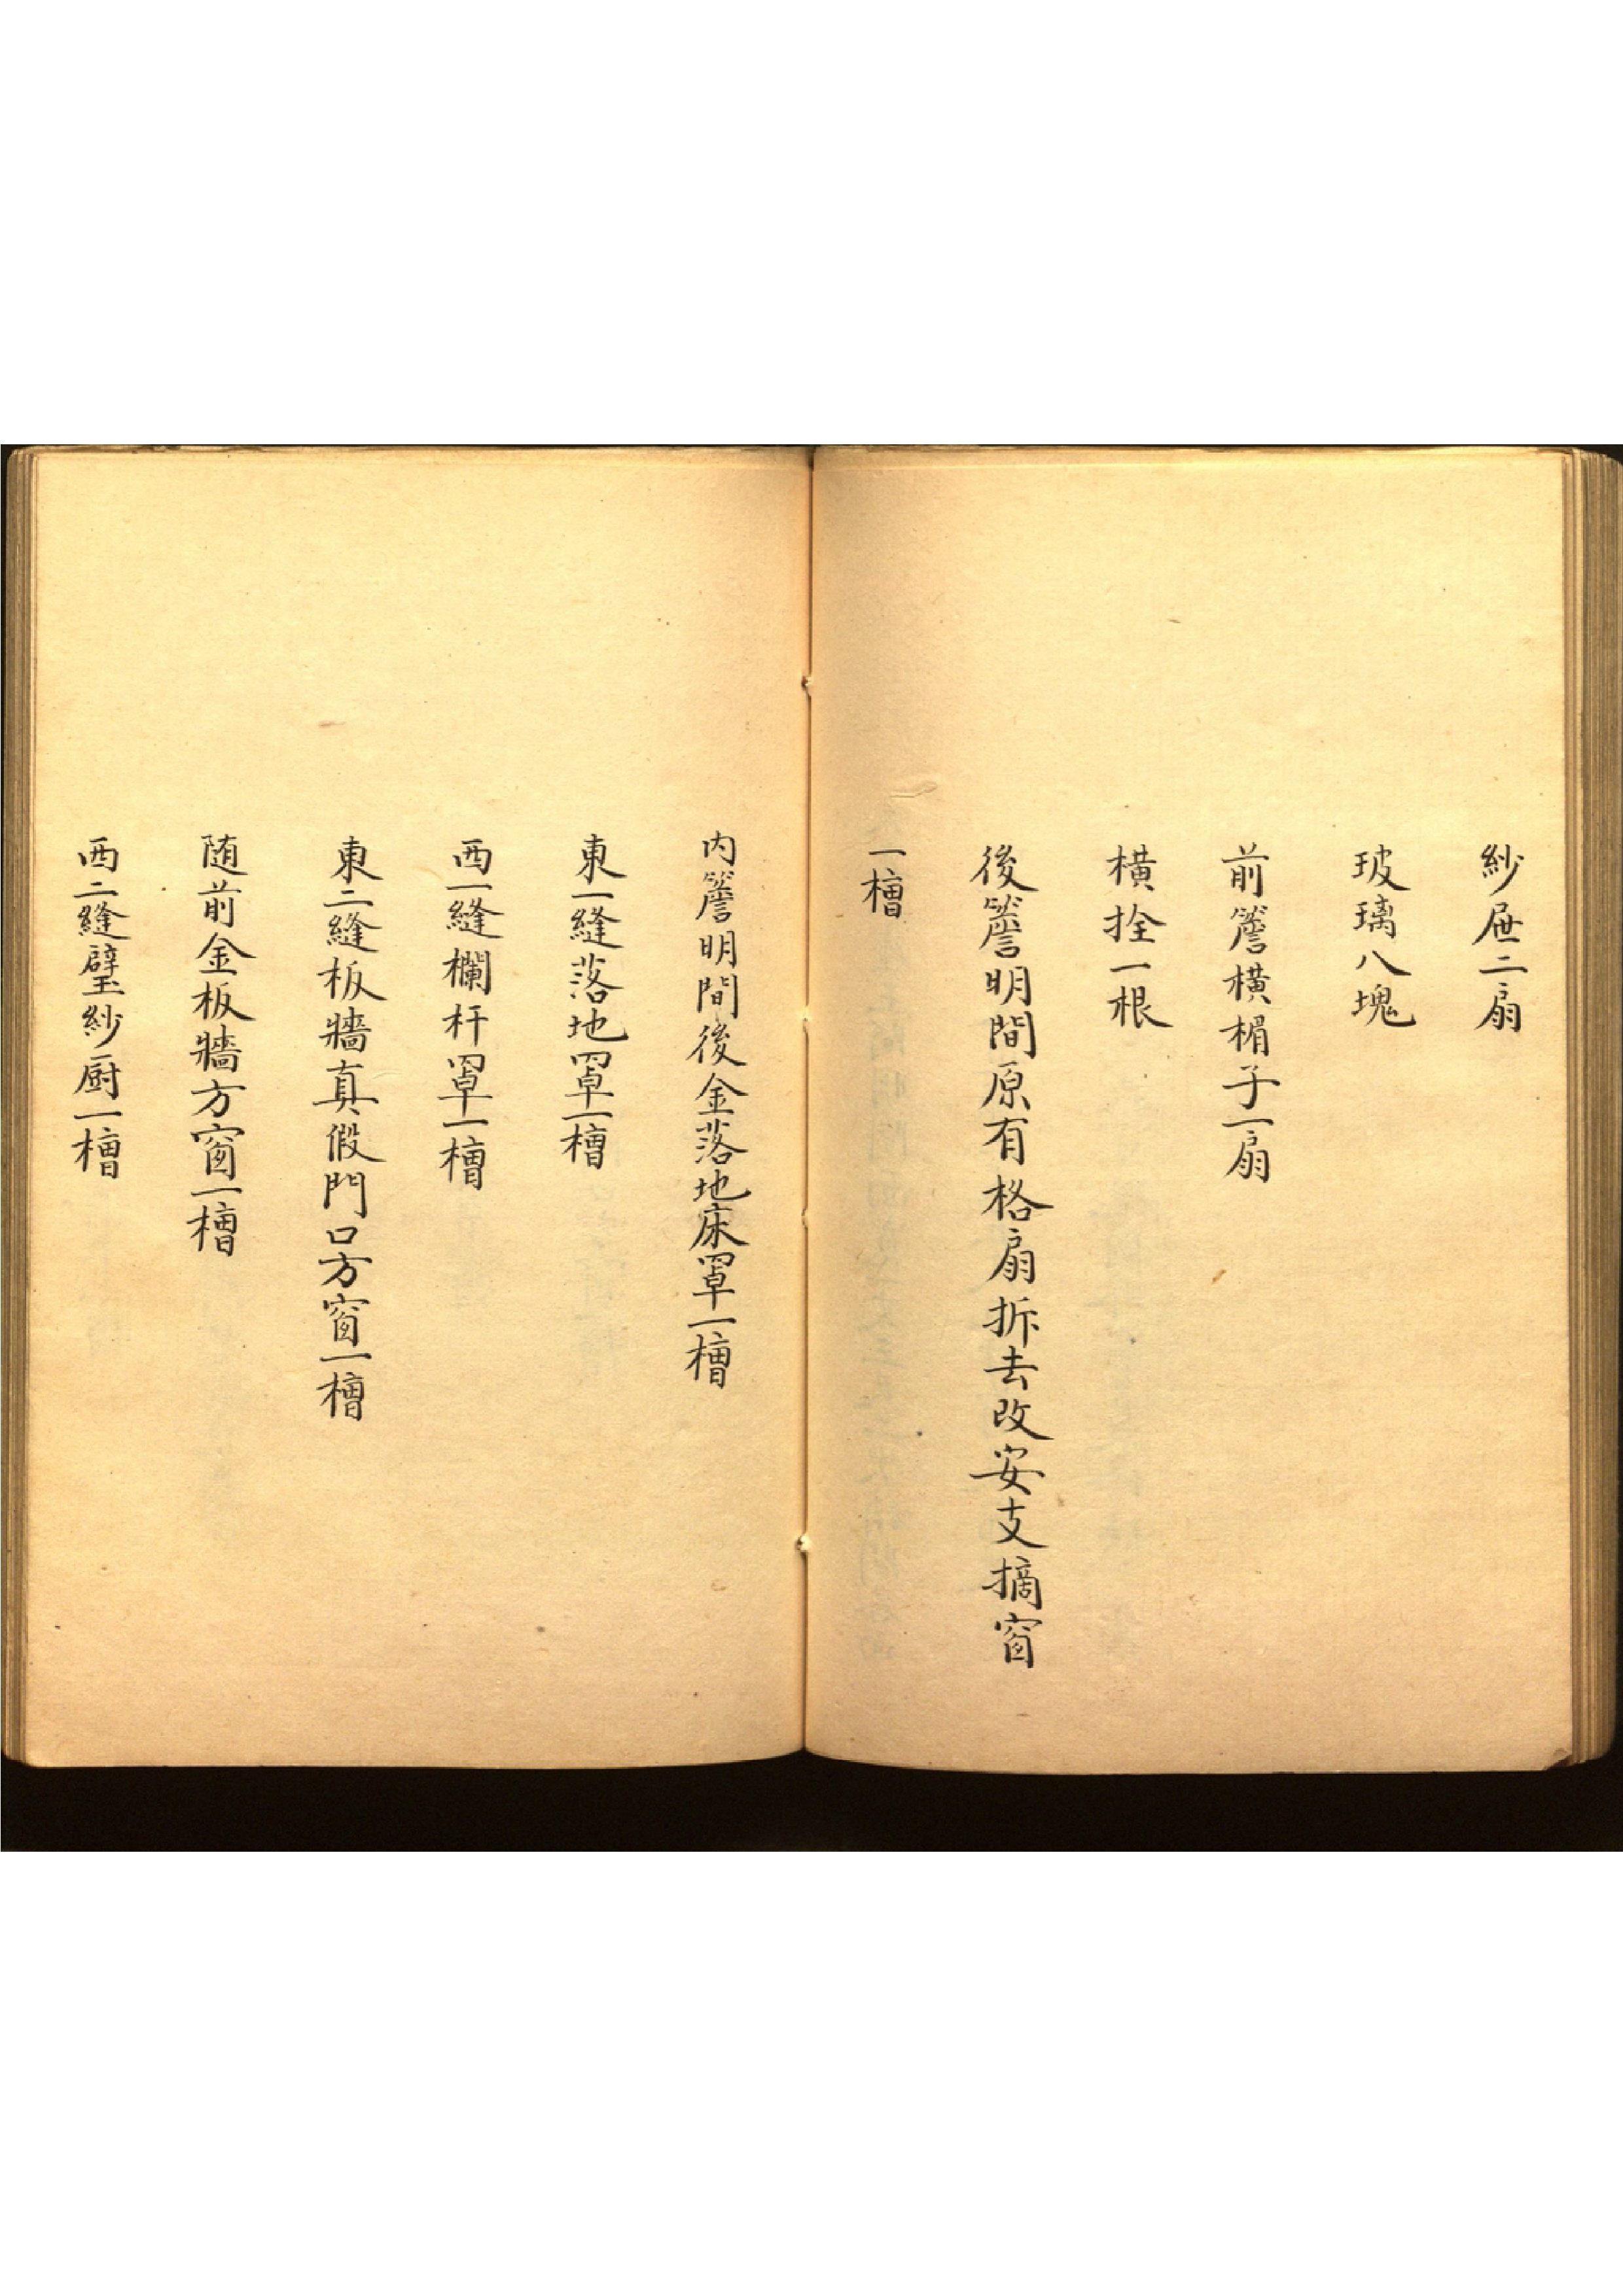 紗屉二扇
玻璃八塊
前簷橫楣子一扇
橫拴一根
後簷明間原有格扇拆去改安支摘窗
一槽
内簷明間後金落地床罩一槽
東一縫落地罩一槽
西一縫欄杆罩一槽
東二縫板牆真假門口方窗一槽
随前金板牆方窗一槽
西二縫璧紗厨一槽